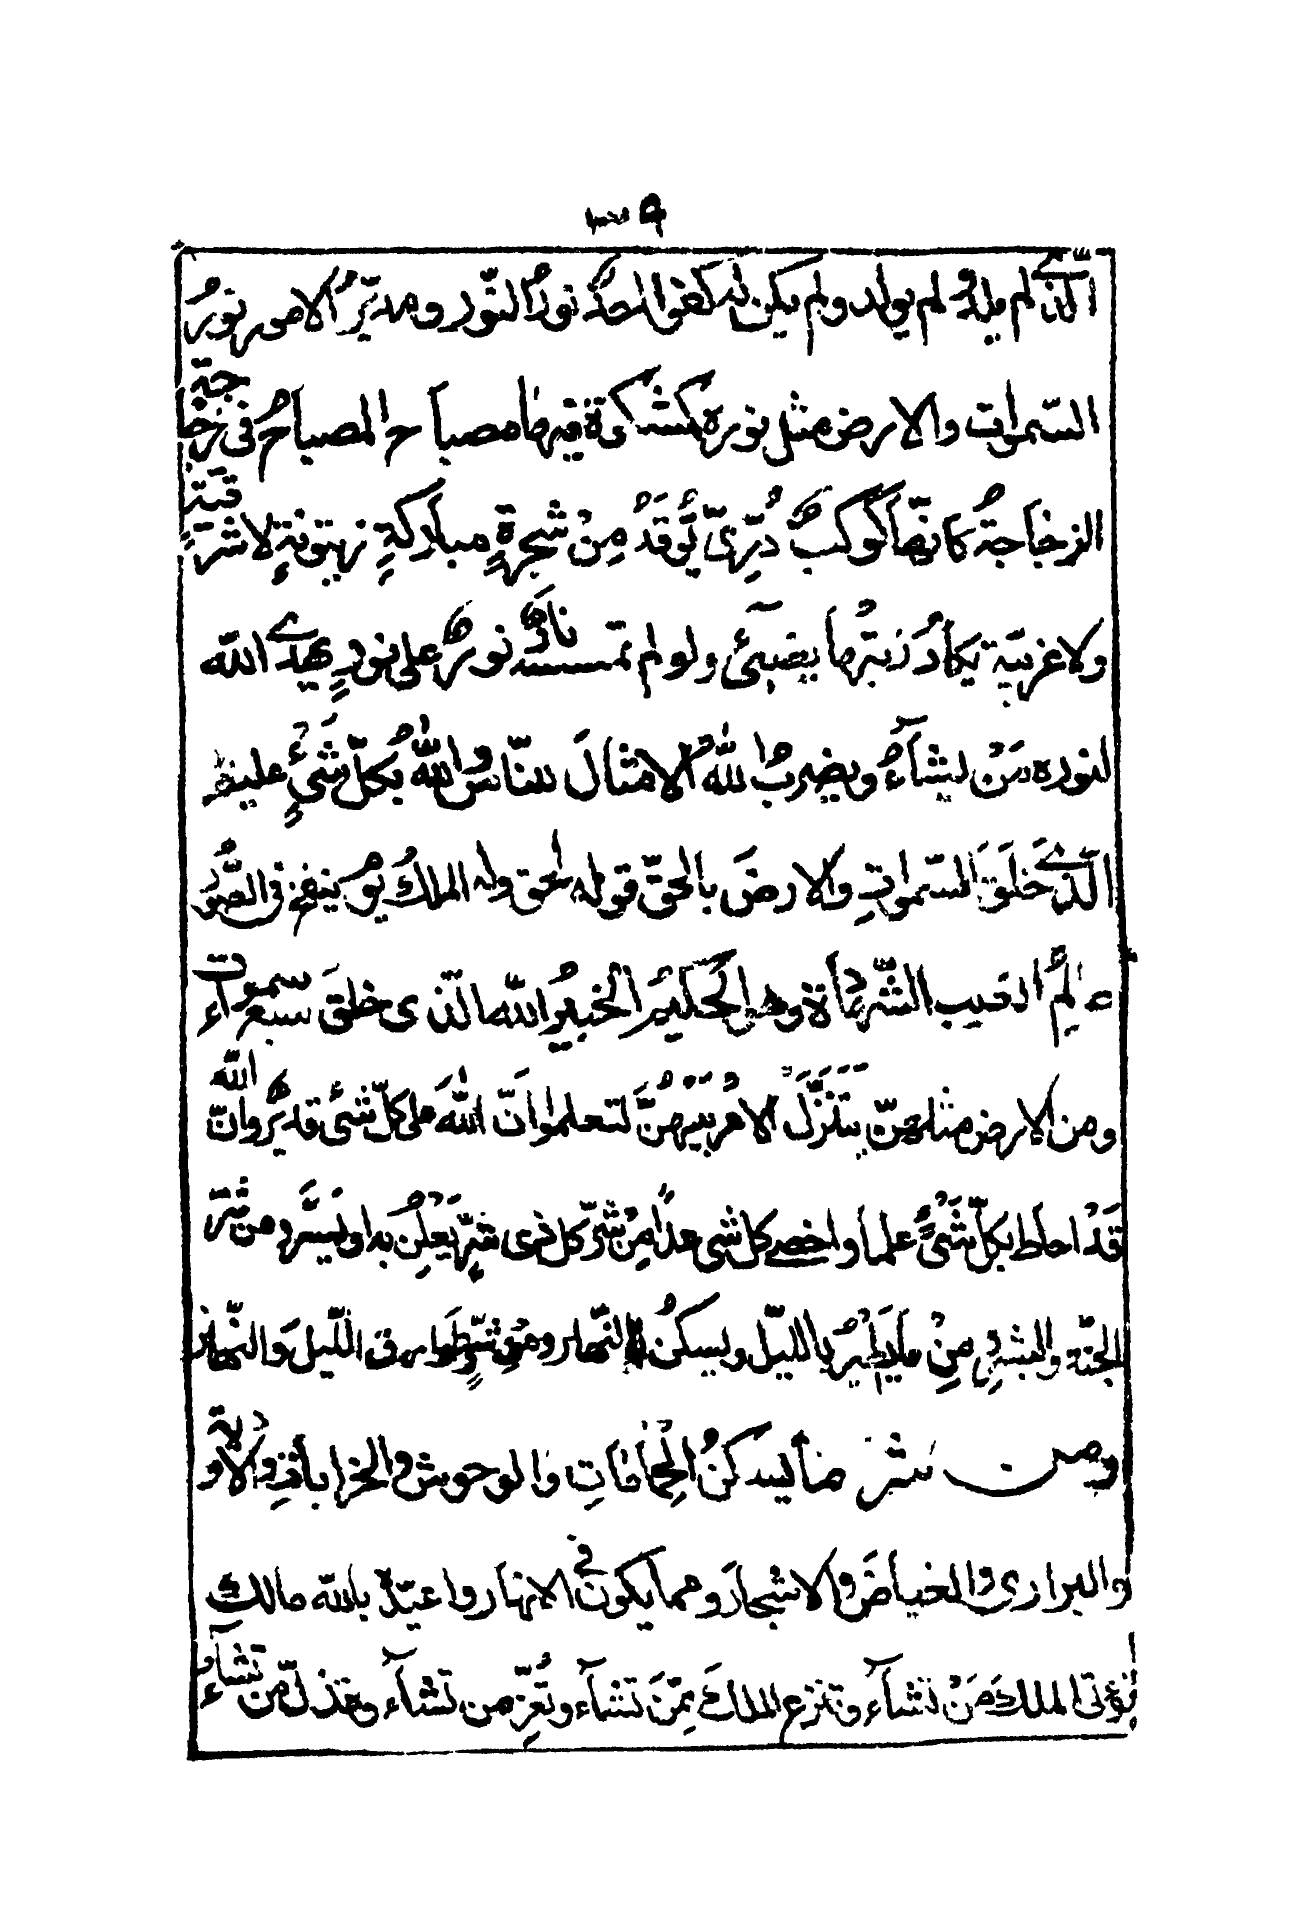 الّذي لم يلد ولم يولد ولم يكن له كفوا احد نور النّور ومدبّر الامور نور
السّموات والارض مثل نوره كمشكوة فيها مصباح المصباح فى زجاجة
الزّجاجة كانّها كوكب درّىّ يّوقد من شجرة مباركة زيتونة لا شرقيّة
ولا غربيّة يكاد زيتها يضيئ ولو لم تمسسه نار نور على نور يهدي الله
لنوره من يشآء ويضرب الله الامثال للنّاس والله بكلّ شيئ عليم
الّذي خلق السّموات والارض بالحقّ قوله الحق وله الملك يوم ينفخ فى الصّور
عالم الغيب والشّهادة وهو الحكيم الخبير الله الّذى خلق سبع سموات
ومن الارض مثلهنّ يتنزّل الامر بينهنّ لتعلموا انّ الله على كلّ شئ قدير وانّ الله
قد احاط بكلّ شئ علما واحصى كل شى عددا من شرّ كل ذى شرّ يعلن به او يسرّ ومن شرّ
الجنّة والبشر ومن ما يطير بالليل ويسكن النّهار ومن شرّ طوارق اللّيل والنّهار
ومن شر ما يسكن الحمامات والوحوش والخرابات والاودية
والبرارى والغياض والاشجار ومما يكون فى الانهار واعيّذ بالله مالك
الملك تؤتى الملك من تشآء وتنزع الملك ممّن تشآء وتعزّ من تشآء وتذلّ من تشآء